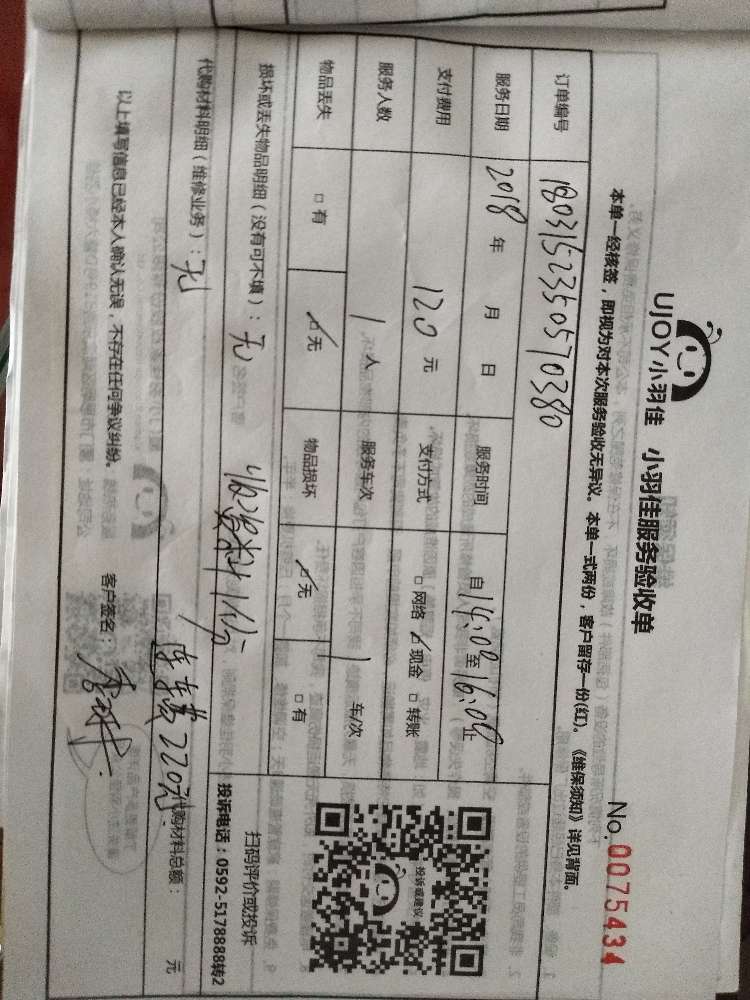 UJOY小羽佳 小羽佳服务验收单
No.0075434
本单一经核签，即视为对本次服务验收无异议。本单一式两份，客户留存一份(红)。《维保须知》详见背面。
订单编号 1803152350570380
服务日期 2018 年 月 日 服务时间 自14:00至16:00止
支付费用 120 元 支付方式 □网络 ☑现金 □转账
服务人数 1 人 服务车次 1 车/次
物品丢失 □有 ☑无 物品损坏 ☑无 □有
投诉或建议
扫码评价或投诉
投诉电话：0592-5178888转2
损坏或丢失物品明细（没有可不填）：无
代购材料明细（维修业务）：无
代购材料总额： 元
220元
以上填写信息已经本人确认无误，不存在任何争议纠纷。 客户签名：